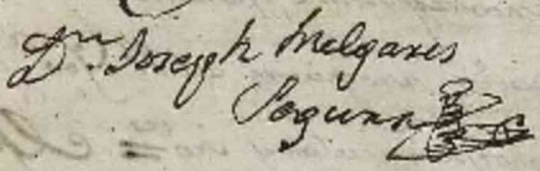 Dn. Joseph Melgares
Segura